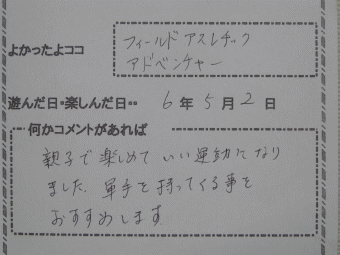 よかったよココ
フィールドアスレチック
アドベンチャー
遊んだ日・楽しんだ日・・ 6年5月2日
何かコメントがあれば
親子で楽しめていい運動になり
ました。軍手を持ってくる事を
おすすめします